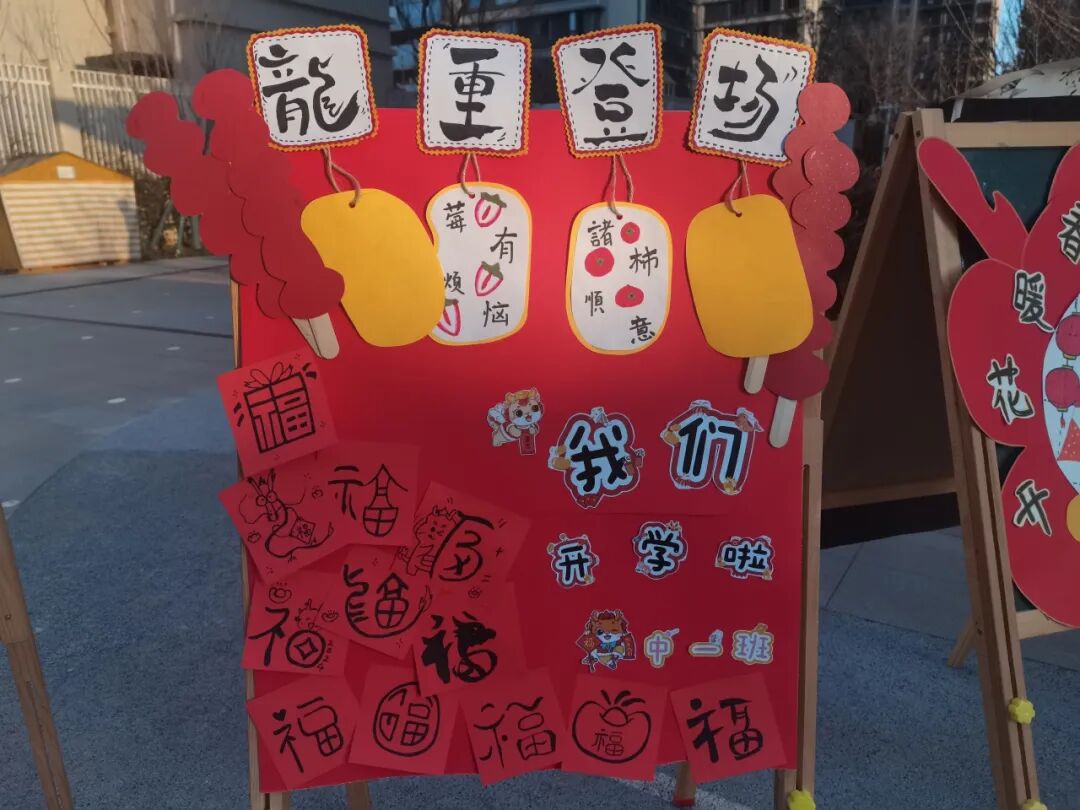 龍重登場
莓有烦恼
諸柿順意
我们
开学啦
中一班
福
福
福
福
福
福
福
福
福
福
福
福
福
春暖花开